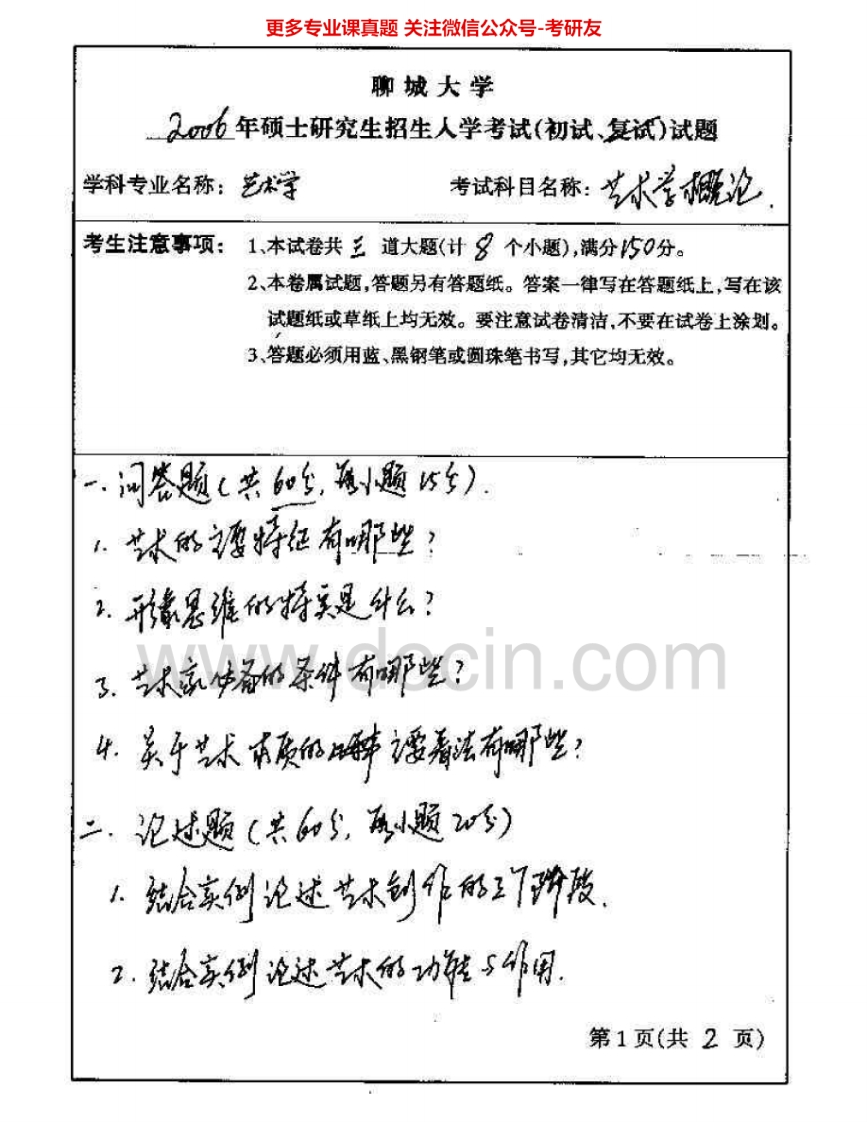 更多专业课真题 关注微信公众号-考研友
聊城大学
2006年硕士研究生招生入学考试(初试、复试)试题
学科专业名称：艺术学 考试科目名称：艺术学概论.
考生注意事项： 1、本试卷共 三 道大题(计 8 个小题),满分150分。
2、本卷属试题,答题另有答题纸。答案一律写在答题纸上,写在该
试题纸或草纸上均无效。要注意试卷清洁,不要在试卷上涂划。
3、答题必须用蓝、黑钢笔或圆珠笔书写,其它均无效。
一. 问答题(共60分, 每小题15分).
1. 艺术的主要特征有哪些?
2. 形象思维的特实是什么?
www.docin.com
3. 艺术家必备的条件有哪些?
4. 关于艺术本质的主要看法有哪些?
二. 论述题(共60分, 每小题20分)
1. 结合实例论述艺术创作的三个阶段.
2. 结合实例论述艺术的功能与作用.
第1页(共 2 页)